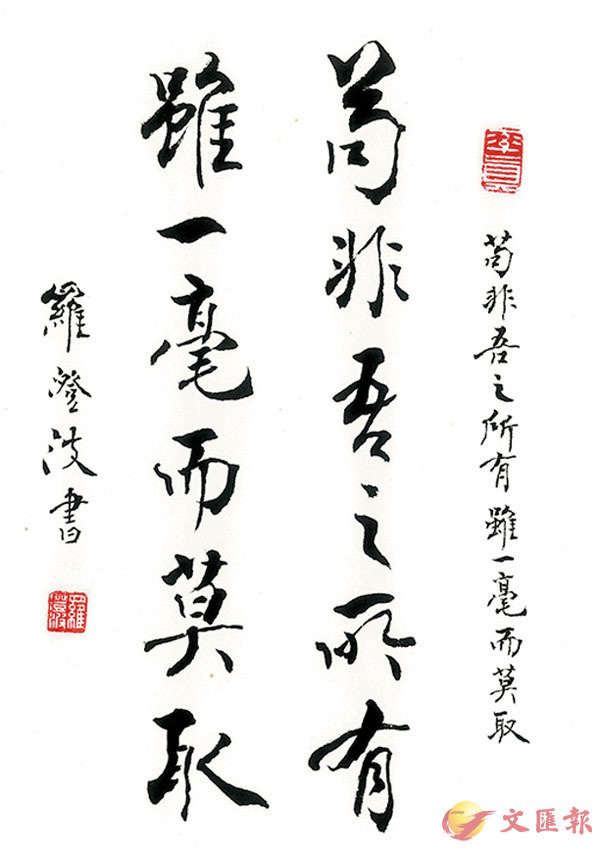 苟非吾之所有雖一毫而莫取
苟非吾之所有
雖一毫而莫取
羅澄波書
文匯報